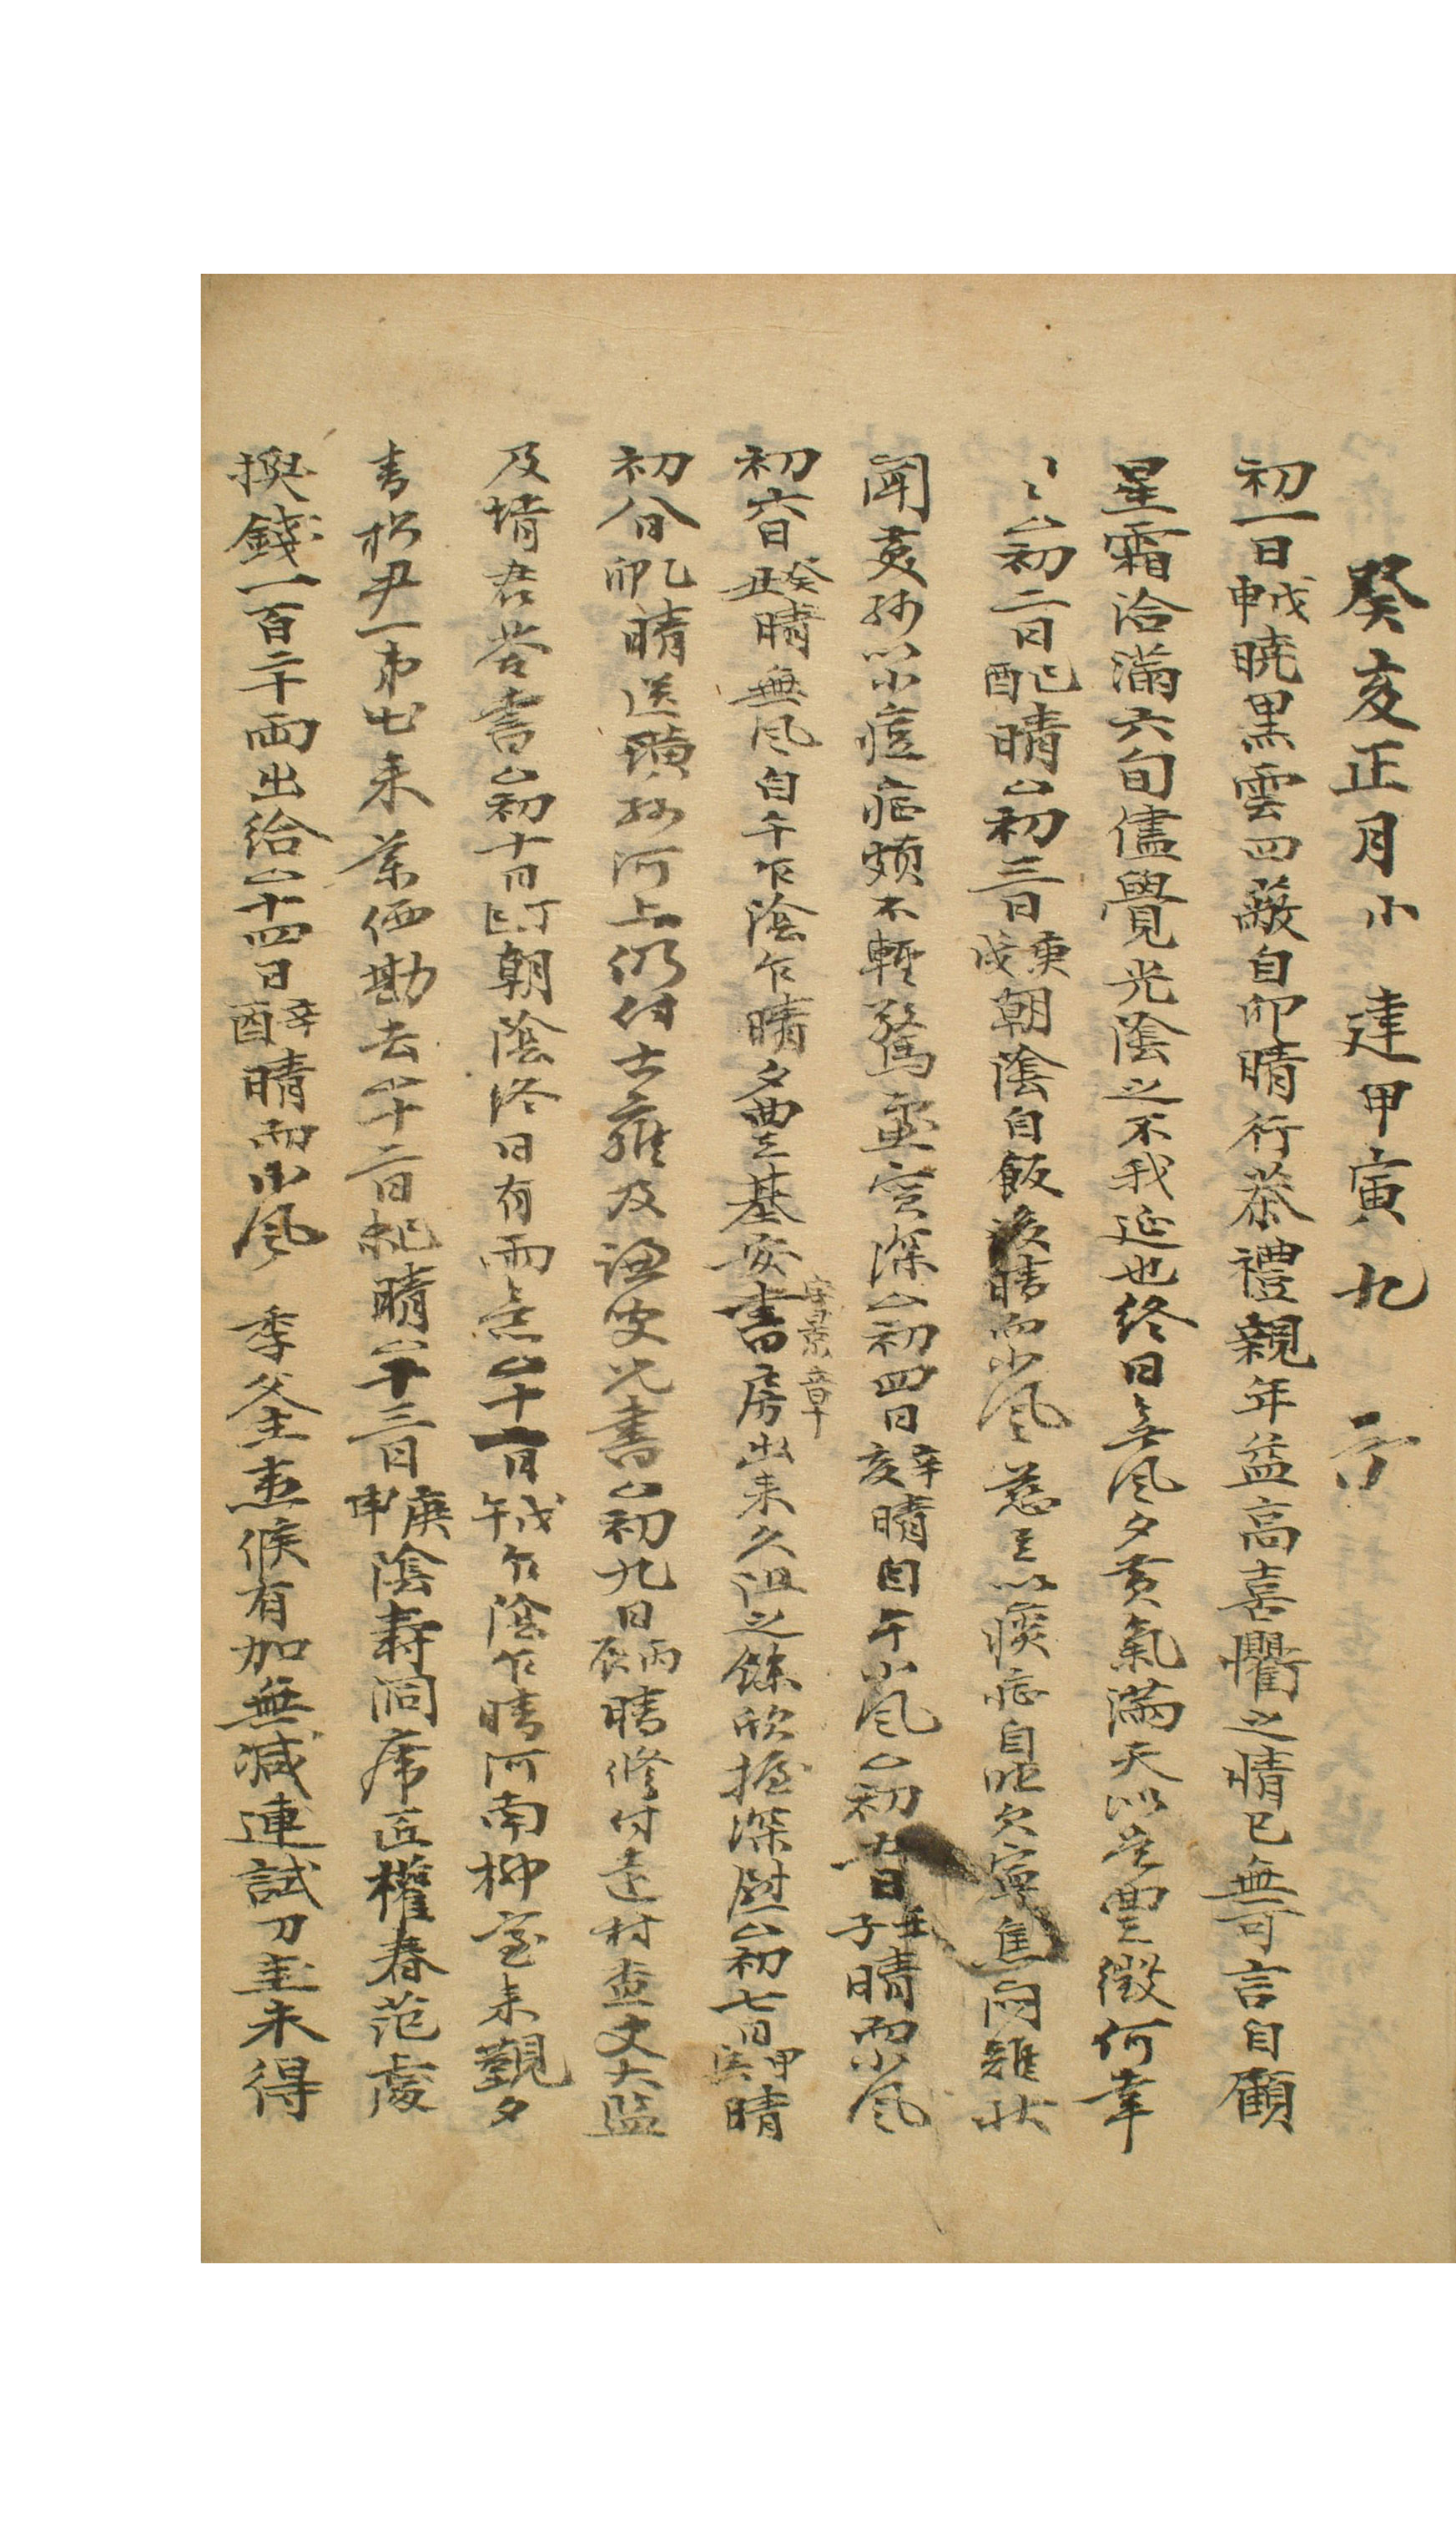 癸亥正月小 建甲寅 九
初一日戊申曉黑雲四蔽自卯晴行叅禮親年益高喜懼之情已無可言自顧
星霜洽滿六旬儘覺光陰之不我延也終日無風夕黃氣滿天以是豊徵何幸
〻〻初二日己酉晴△初三日庚戌朝陰自飯後晴而小風 慈主以痰症自昨欠寧焦悶難狀
聞亥孫以小痘症頗不輕驚慮實深△初四日辛亥晴自午小風△初五日壬子晴而小風
初六日癸丑晴無風自午乍陰乍晴夕豊基安書房出來久阻之餘欣握深慰△初七日甲寅晴
字景章
初八日乙卯晴送璜孫河上仍付士雍及謙叟兄書△初九日丙辰晴修付遠村查丈大監
及壻君答書△初十日丁巳朝陰終日有雨意△十一日戊午乍陰乍晴河南柳室來覲夕
青松尹一弟也來葉価勘去△十二日己未晴△十三日庚申陰壽洞席匠權春范處
換錢一百二十両出給△十四日辛酉晴而小風 季父主患候有加無减連試刀圭未得